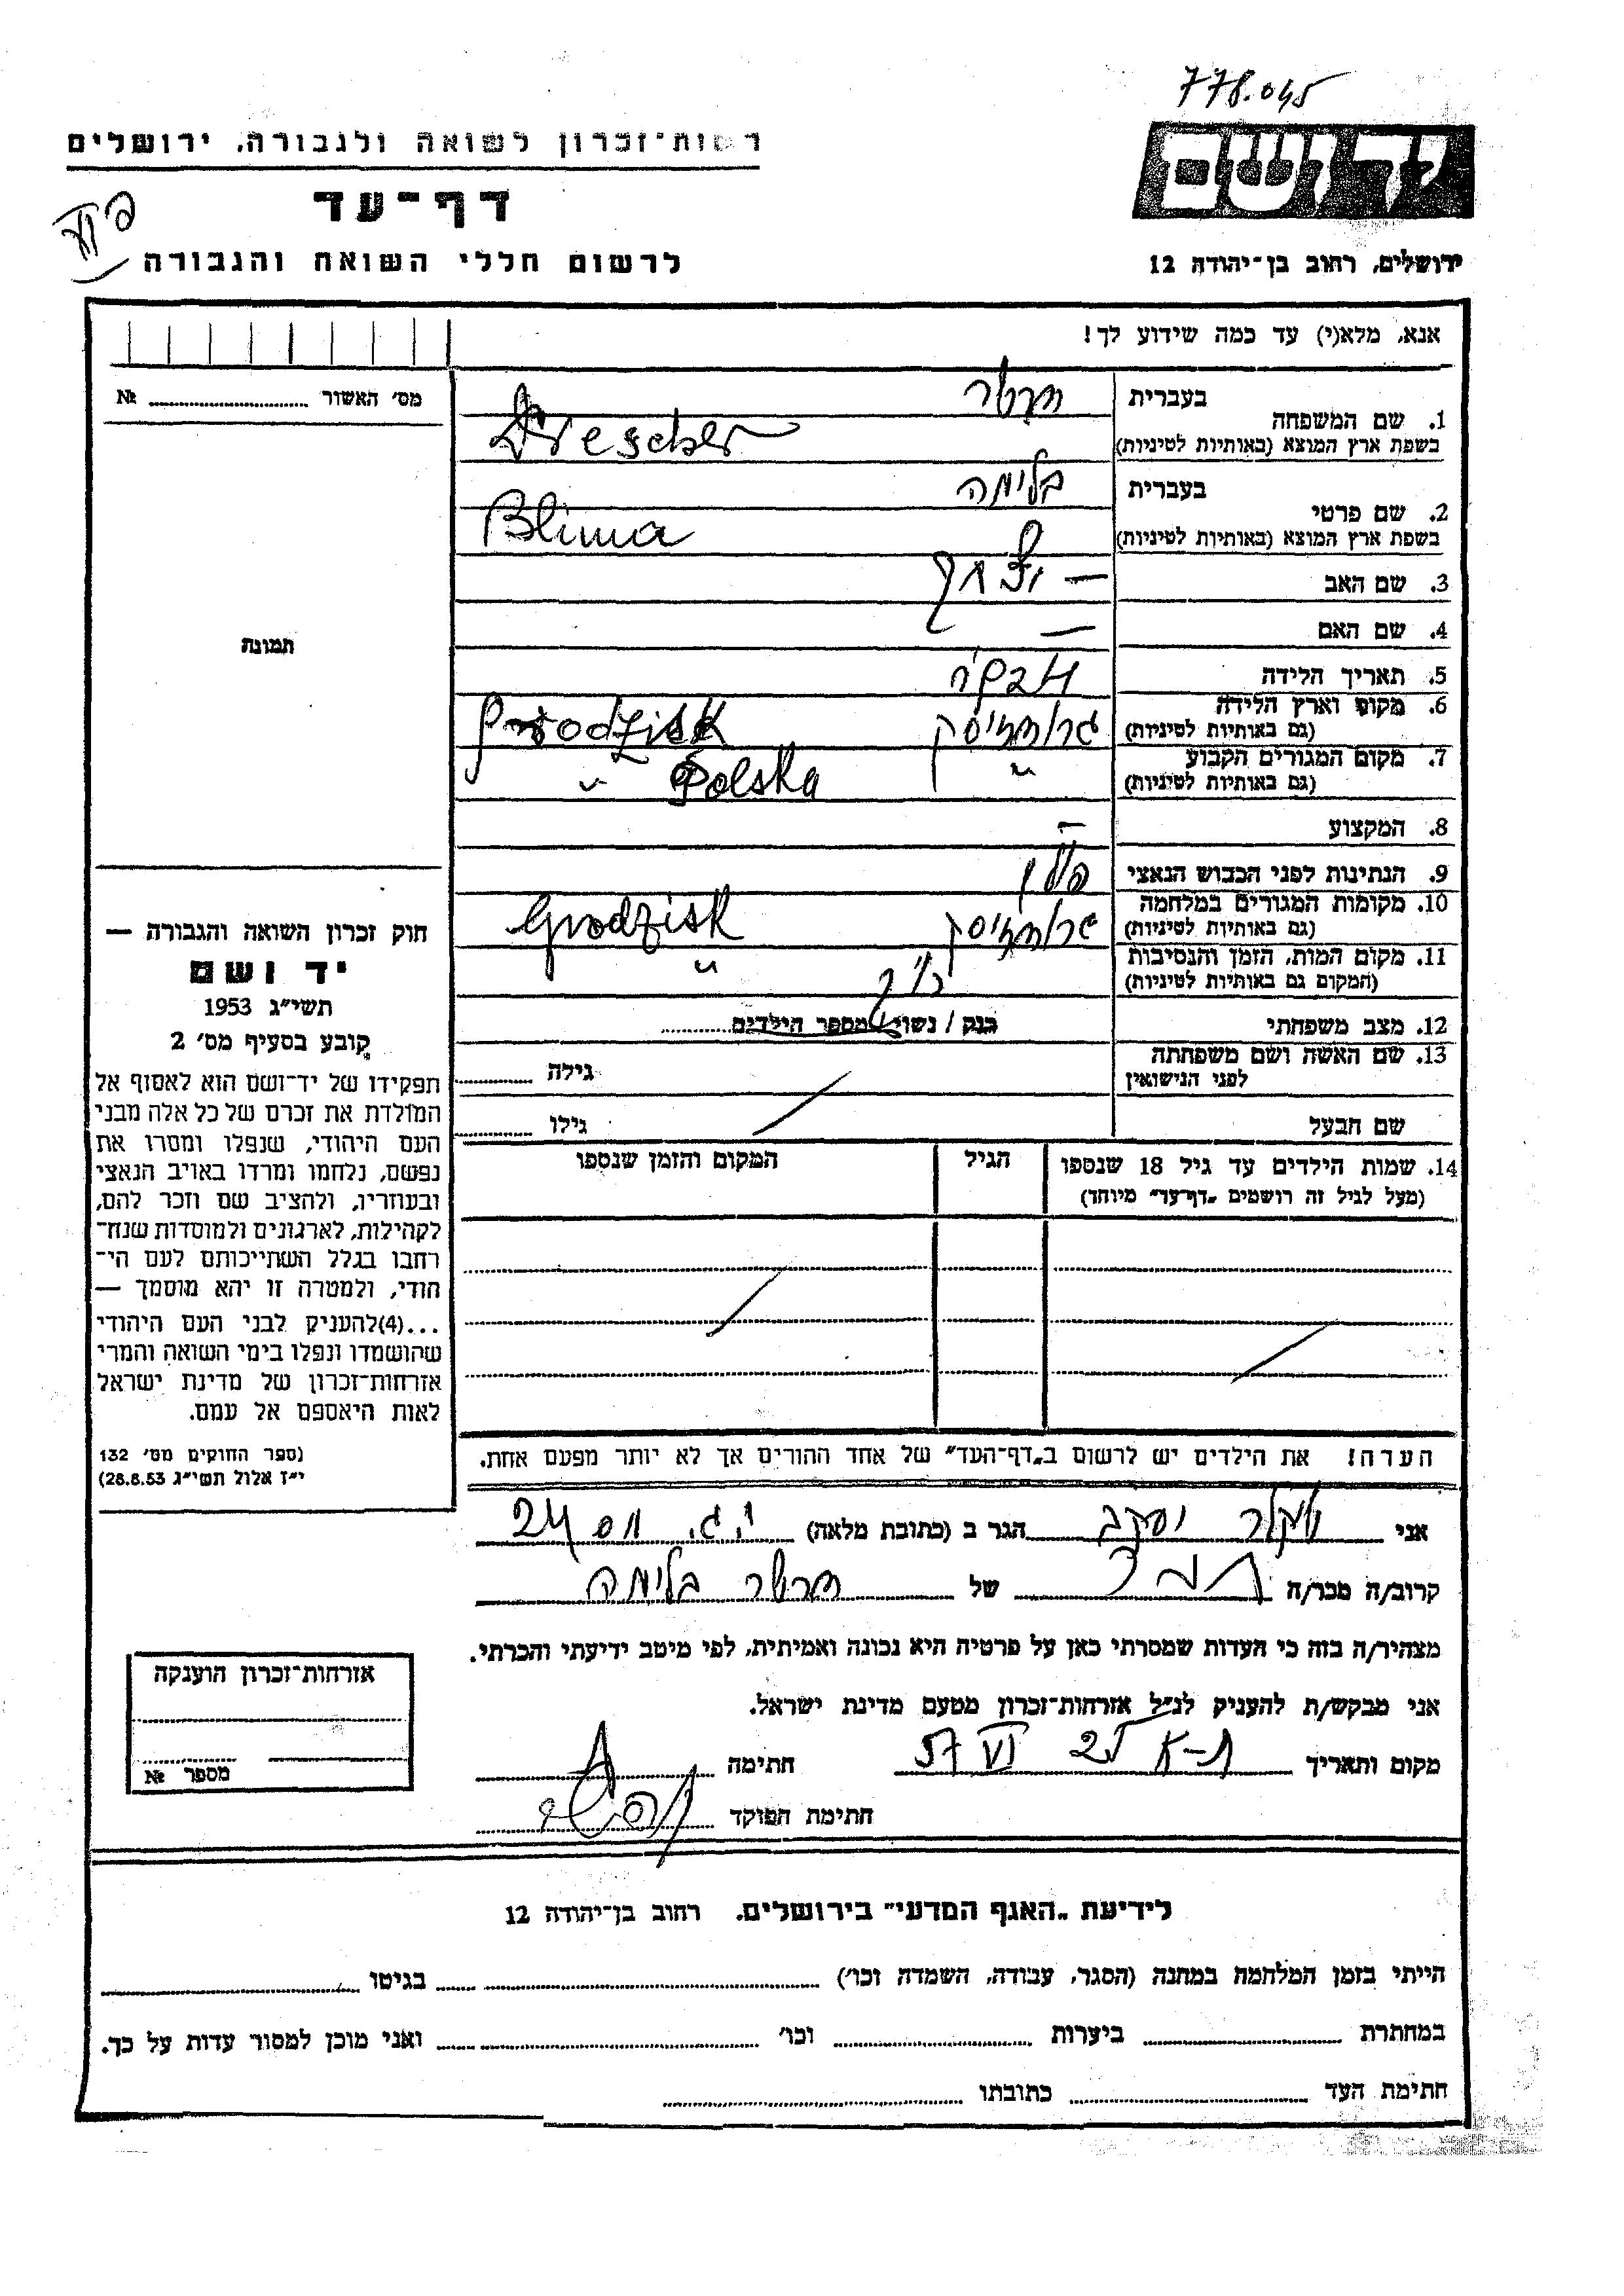 778.045
רשות-זכרון לשואה ולגבורה, ירושלים
דף-עד
לרשום חללי השואה והגבורה
ירושלים, רחוב בן-יהודה 12
אנא, מלא(י) עד כמה שידוע לך!
מס׳ האשור № 
תמונה
1. שם המשפחה בעברית
בשפת ארץ המוצא (באותיות לטיניות) Drescher
2. שם פרטי בעברית בלימה
בשפת ארץ המוצא (באותיות לטיניות) Blima
3. שם האב —
4. שם האם —
5. תאריך הלידה
6. מקום וארץ הלידה Grodzisk
(גם באותיות לטיניות)
7. מקום המגורים הקבוע " Polska "
(גם באותיות לטיניות)
8. המקצוע —
9. הנתינות לפני הכבוש הנאצי
10. מקומות המגורים במלחמה Grodzisk
(גם באותיות לטיניות)
11. מקום המות, הזמן והנסיבות "
(המקום גם באותיות לטיניות)
12. מצב משפחתי רנק / נשוי מספר הילדים
13. שם האשה ושם משפחתה גילה
לפני הנישואין
שם הבעל גילו
14. שמות הילדים עד גיל 18 שנספו הגיל המקום והזמן שנספו
(מעל לגיל זה רושמים „דף-עד״ מיוחד)
הערה! את הילדים יש לרשום ב„דף-העד״ של אחד ההורים אך לא יותר מפעם אחת.
חוק זכרון השואה והגבורה —
יד ושם
תשי״ג 1953
קובע בסעיף מס׳ 2
תפקידו של יד-ושם הוא לאסוף אל
המולדת את זכרם של כל אלה מבני
העם היהודי, שנפלו ומסרו את
נפשם, נלחמו ומרדו באויב הנאצי
ובעוזריו, ולהציב שם וזכר להם,
לקהילות, לארגונים ולמוסדות שנח-
רחבו בגלל השתייכותם לעם הי-
הודי, ולמטרה זו יהא מוסמך —
...(4)להעניק לבני העם היהודי
שהושמדו ונפלו בימי השואה והמרי
אזרחות-זכרון של מדינת ישראל
לאות היאספם אל עמם.
(ספר החוקים מס׳ 132
י״ז אלול תשי״ג 28.8.53)
אני יעקב הגר ב (כתובת מלאה) 24
קרוב/ה מכר/ה של בלימה
מצהיר/ה בזה כי העדות שמסרתי כאן על פרטיה היא נכונה ואמיתית, לפי מיטב ידיעתי והכרתי.
אני מבקש/ת להעניק לנ״ל אזרחות-זכרון מטעם מדינת ישראל.
מקום ותאריך ת-א 25 VI 57 חתימה
חתימת הפוקד
אזרחות-זכרון הוענקה
מספר №
לידיעת „האגף המדעי״ בירושלים, רחוב בן-יהודה 12
הייתי בזמן המלחמה במחנה (הסגר, עבודה, השמדה וכו׳) בגיטו
במחתרת ביערות וכו׳ ואני מוכן למסור עדות על כך.
חתימת העד כתובתו